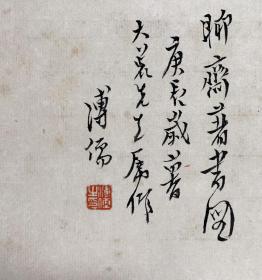 聊齋著書圖
庚辰歲暮
大羛先生屬作
溥儒